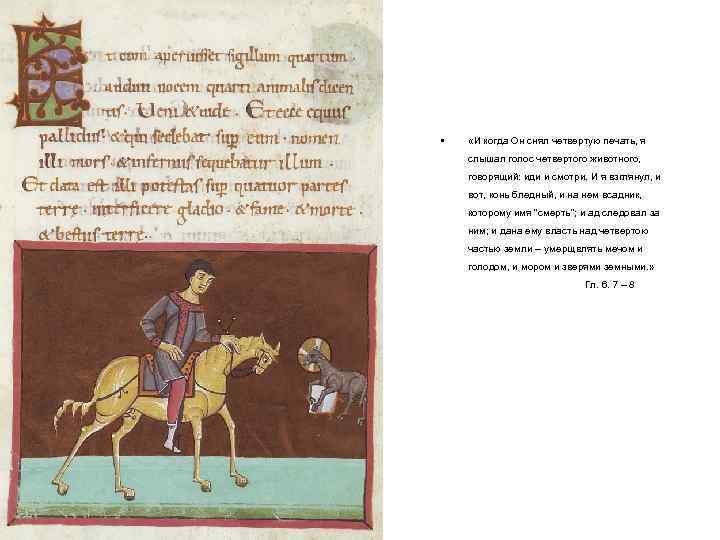 Et cum aperuisset sigillum quartum
audiui uocem quarti animalis dicen
tis. Ueni & uide. Et ecce equus
pallidus & qui sedebat sup eum. nomen
illi mors & infernus sequebatur illum.
Et data est illi potestas sup quatuor partes
terre. interficere gladio. & fame. & morte
& bestiis terre.
• «И когда Он снял четвертую печать, я
слышал голос четвертого животного,
говорящий: иди и смотри. И я взглянул, и
вот, конь бледный, и на нем всадник,
которому имя "смерть"; и ад следовал за
ним; и дана ему власть над четвертою
частью земли – умерщвлять мечом и
голодом, и мором и зверями земными.»
Гл. 6. 7 – 8